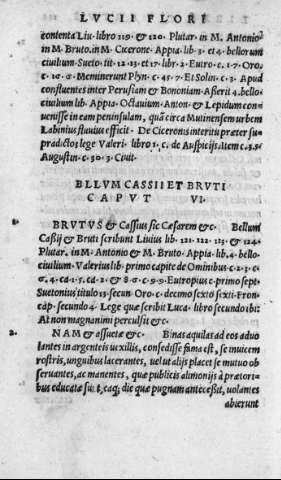 LVCII FLORI
contenta Liu. libro 119. & 120. Plutar. in M. Antonio
in M. Bruto. in M. Cicerone. Appia. lib. 3. et 4. bellorum
ciuilium. Sueto. tit. 12. 13. et 17. libr. 2. Eutro. c. 1. 7. Oro.
c. 16. Meminerunt Plyn. c. 45. 7. Et Solin. c. 3. Apud
confluentes inter Perusiam & Bononiam. Asserit 4. bello
ciuilium lib. Appia. Octauium Anton. & Lepidum con-
uenisse in eam peninsulam, quā circa Mutinensem urbem
Labinius fluuius efficit. De Ciceronis interitu præter su-
pradictos lege Valeri. libro 1. c. de Auspicijs. Item
Augustin. c. 30. 3. Ciuit.
BLLVM CASSII ET BRVTI
CAPVT VI.
BRVTVS & Cassius sic Cæsarem &c. Bellum
Cassij & Bruti scribunt Liuius lib. 121. 122. 113. & 124.
Plutar. in M. Antonio & M. Bruto. Appia lib. 4. bello.
ciuilium. Valerius lib. primo capite de Ominibus c. 2. 3. c.
6. 4. ca. 15. ca. 2. & 8. c. 9. 9. Eutropius c. primo sept.
Suetonius titulo 13. secun. Oro. c. decimo sexto sexti. Fron.
cap. secundo 4. Lege quæ scribit Luca. libro secundo ibi:
At non magnanimi percussit &c.
NAM & assuetæ &c. Binas aquilas ad eos aduo
lantes in argenteis uexillis, consedisse fama est, se inuicem
rostris, unguibus lacerantes, uel ut alijs placet se mutuo ob
seruantes, ac manentes, quæ publicis alimonijs à prætori-
bus educatæ sūt, eaq; die quæ pugnam antecessit, uolantes
abierunt